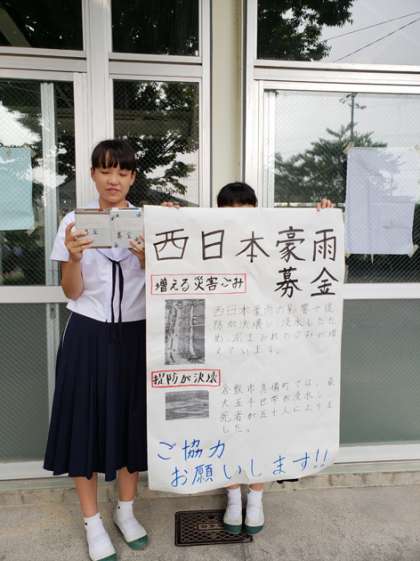 西日本豪雨
募金
増える災害ごみ
西日本豪雨の影響で堤
防が決壊し浸水したた
め、泥まみれのごみが増
えています。
堤防が決壊
倉敷市真備町では、最
大五千世帯が浸水し、
死者が五十人になりま
した。
ご協力
お願いします!!